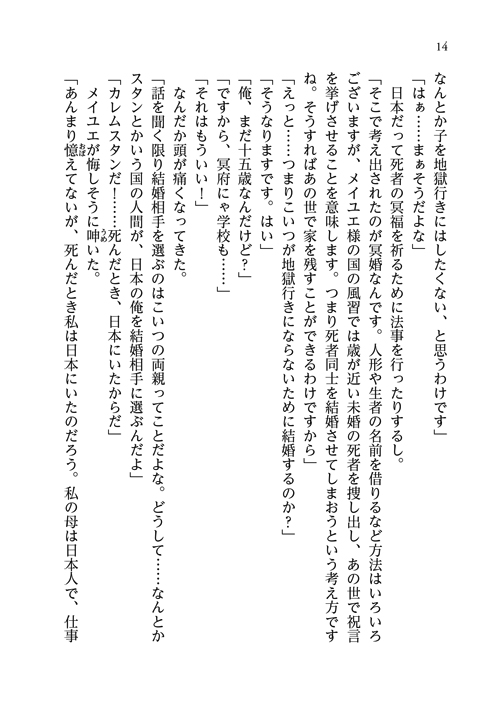 14
なんとか子を地獄行きにはしたくない、と思うわけです」
「はぁ……まぁそうだよな」
日本だって死者の冥福を祈るために法事を行ったりするし。
「そこで考え出されたのが冥婚なんです。人形や生者の名前を借りるなど方法はいろいろ
ございますが、メイユエ様の国の風習では歳が近い未婚の死者を捜し出し、あの世で祝言
を挙げさせることを意味します。つまり死者同士を結婚させてしまおうという考え方です
ね。そうすればあの世で家を残すことができるわけですから」
「えっと……つまりこいつが地獄行きにならないために結婚するのか？」
「そうなりますです。はい」
「俺、まだ十五歳なんだけど？」
「ですから、冥府にゃ学校も……」
「それはもういい！」
なんだか頭が痛くなってきた。
「話を聞く限り結婚相手を選ぶのはこいつの両親ってことだよな。どうして……なんとか
スタンとかいう国の人間が、日本の俺を結婚相手に選ぶんだよ」
「カレムスタンだ！……死んだとき、日本にいたからだ」
メイユエが悔しそうに呻うめいた。
「あんまり憶おぼえてないが、死んだとき私は日本にいたのだろう。私の母は日本人で、仕事